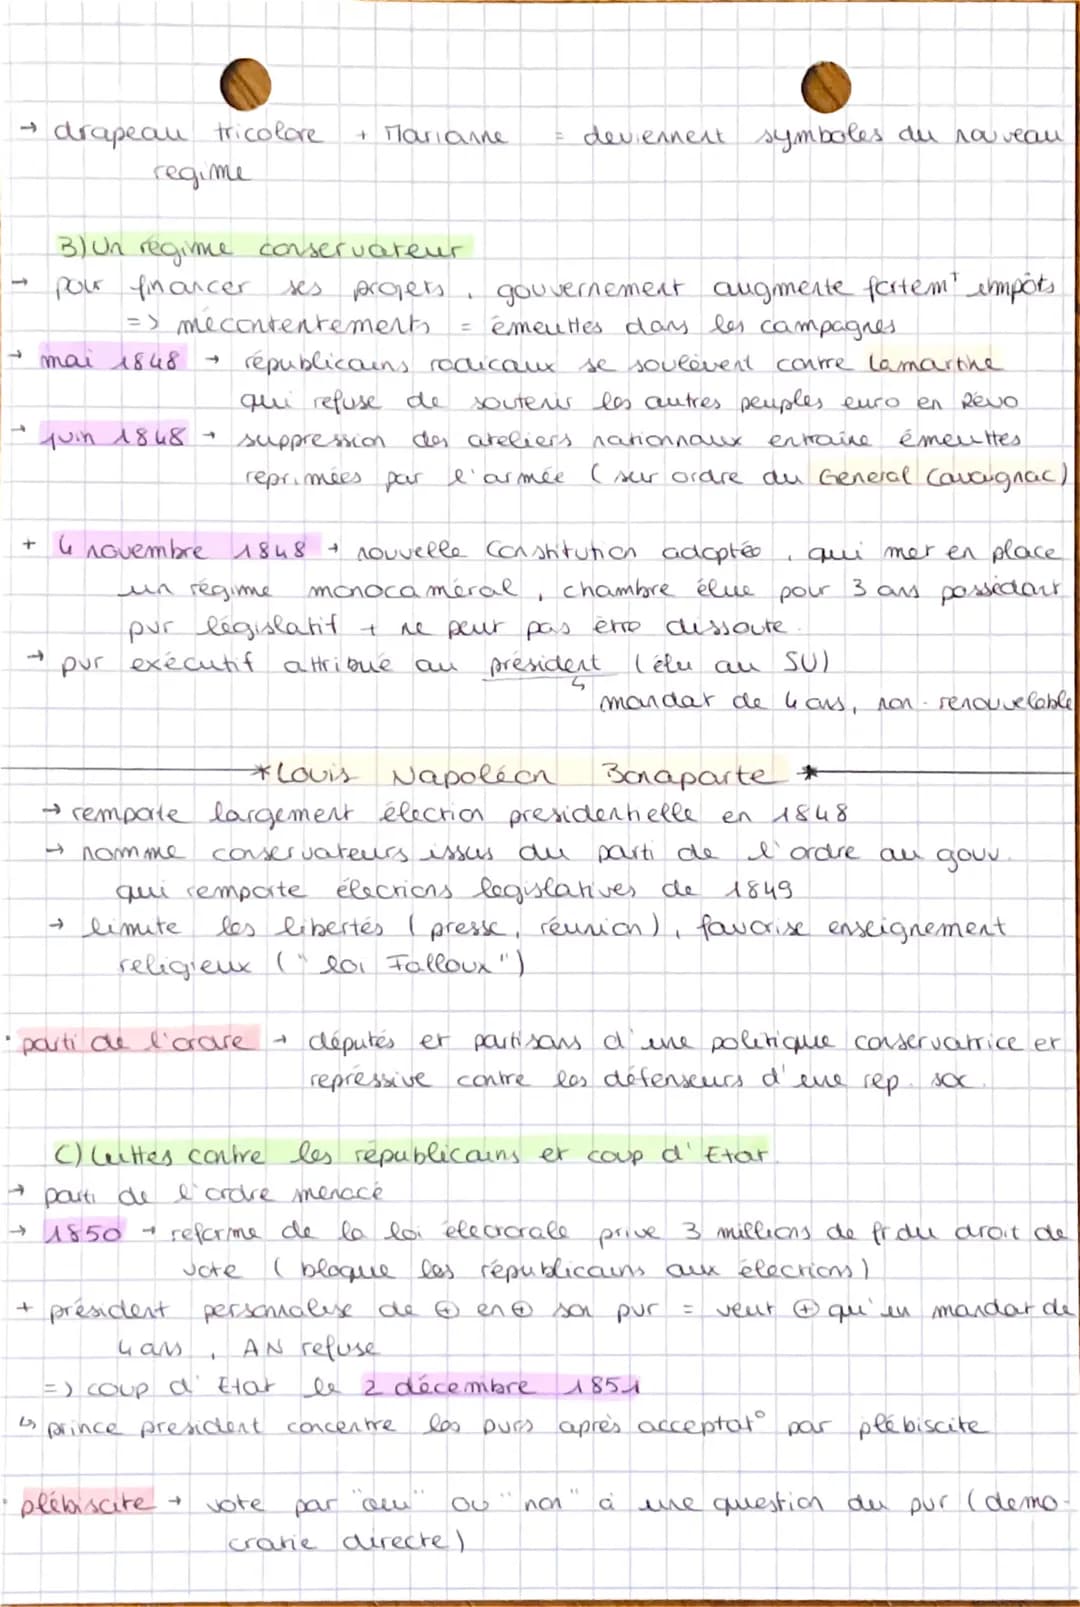 → drapeau tricolore + Marianne = deviennent symboles du nouveau
regime
B) Un régime conservateur
→ pour financer ses projets, gouvernement augmente fortemt impôts
=> mécontentements = émeuttes dans les campagnes
→ mai 1848 → républicains radicaux se soulèvent contre Lamartine
qui refuse de soutenir les autres peuples euro en Révo
→ juin 1848 → suppression des ateliers nationnaux entraine émeuttes
reprimées par l'armée (sur ordre du General Cavaignac)
+ 4 novembre 1848 → nouvelle Constitution adoptée, qui met en place
un régime monocaméral, chambre élue pour 3 ans possédant
pvr législatif + ne peut pas être dissoute.
→ pvr exécutif attribué au président (élu au SU)
↳ mandat de 4 ans, non-renouvelable
*Louis Napoléon Bonaparte*
→ remporte largement élection presidentielle en 1848
→ nomme conservateurs issus du parti de l'ordre au gouv.
qui remporte élections legislatives de 1849
→ limite les libertés (presse, réunion), favorise enseignement
religieux ("loi Falloux")
• parti de l'ordre → députés et partisans d'une politique conservatrice et
repressive contre les défenseurs d'une rep. soc.
C) Luttes contre les républicains et coup d'Etat
→ parti de l'ordre menacé
→ 1850 → reforme de la loi électorale prive 3 millions de fr du droit de
vote (bloque les républicains aux élections)
+ président personnalise de ⊕ en ⊕ son pvr = veut ⊕ qu'un mandat de
4 ans, AN refuse
=> coup d'Etat le 2 décembre 1851
↳ prince president concentre les pvrs après acceptat° par plébiscite
• plébiscite → vote par "oui" ou "non" à une question du pvr (démo-
cratie directe)